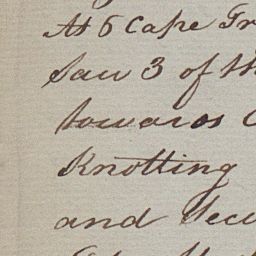 At 6 Cape Fr
Saw 3 of th
towards
Knotting
and Secu